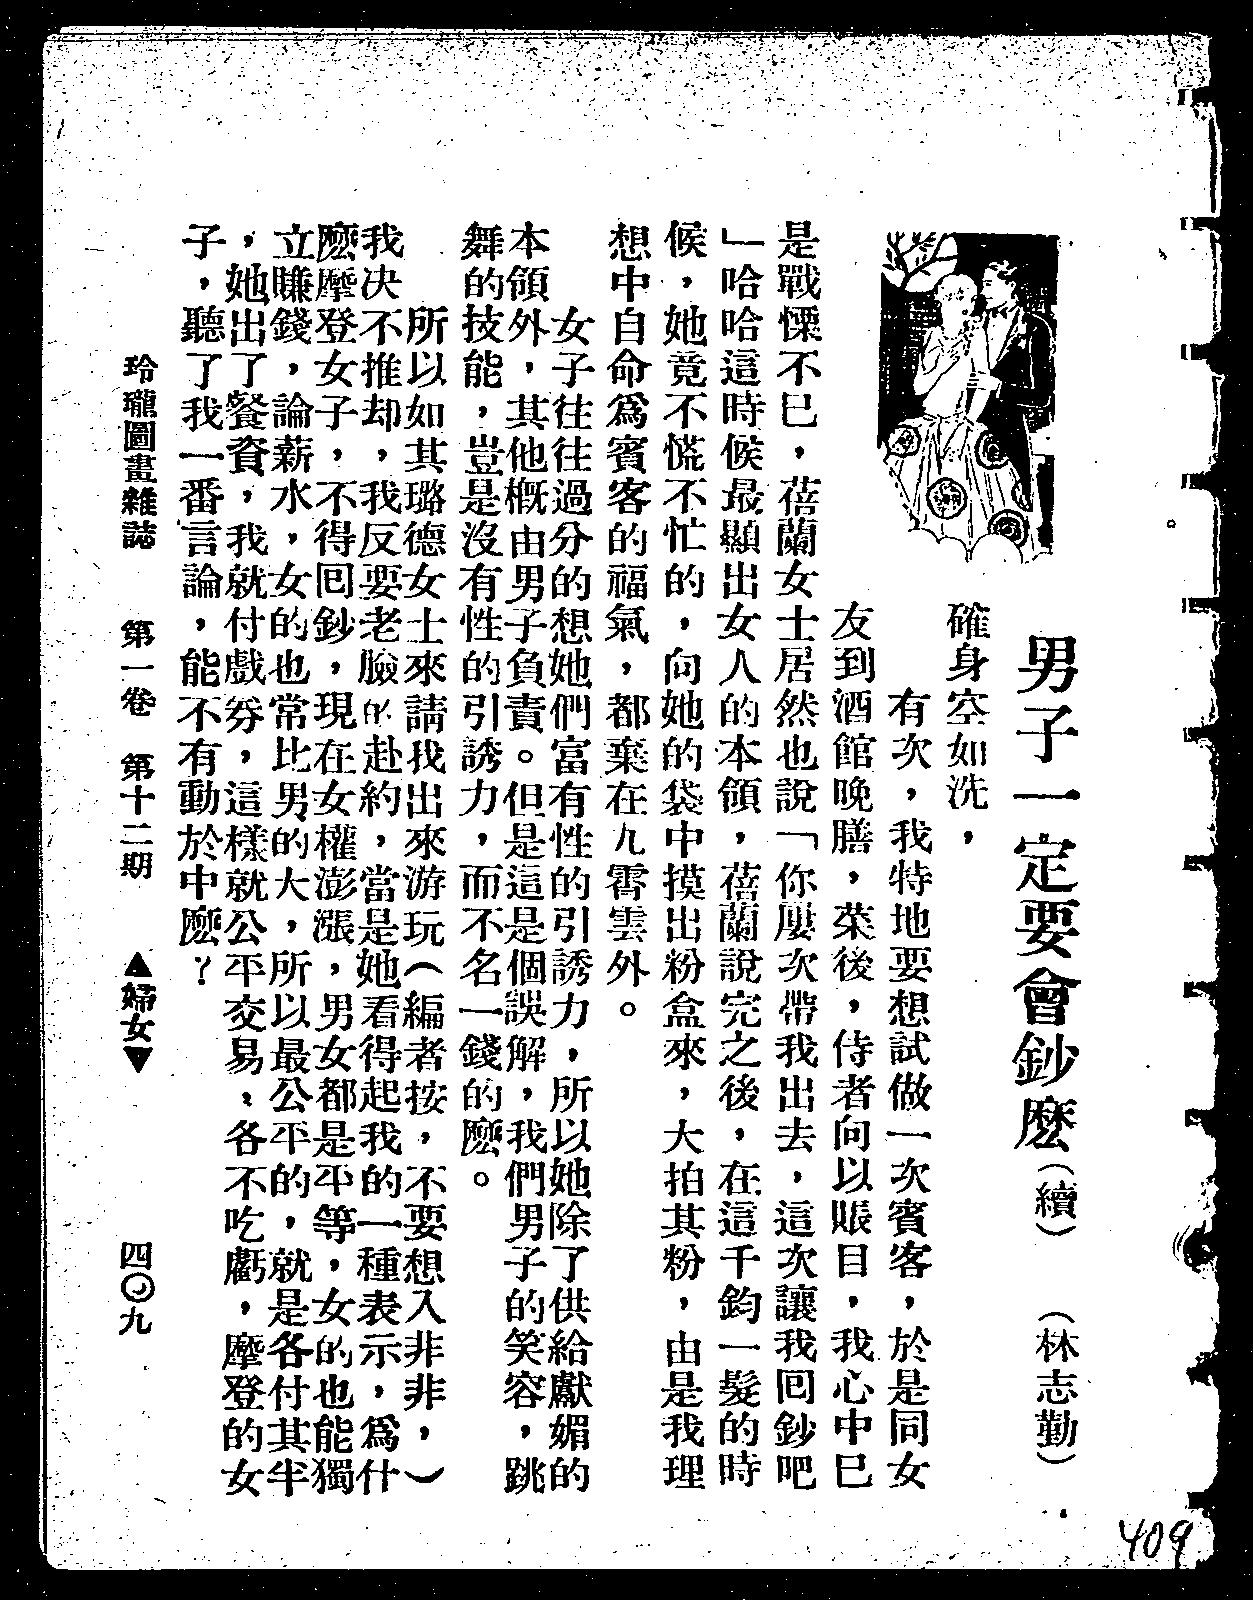 男子一定要會鈔麽（續）　（林志勤）
確身空如洗，
有次，我特地要想試做一次賓客，於是同女
友到酒館晚膳，菜後，侍者向以賬目，我心中已
是戰慄不已，蓓蘭女士居然也說「你屢次帶我出去，這次讓我囘鈔吧
」哈哈這時候最顯出女人的本領，蓓蘭說完之後，在這千鈞一髮的時
候，她竟不慌不忙的，向她的袋中摸出粉盒來，大拍其粉，由是我理
想中自命爲賓客的福氣，都棄在九霄雲外。
女子往往過分的想她們富有性的引誘力，所以她除了供給獻媚的
本領外，其他概由男子負責。但是這是個誤解，我們男子的笑容，跳
舞的技能，豈是沒有性的引誘力，而不名一錢的麽。
所以如其璐德女士來請我出來游玩（編者按，不要想入非非，）
我決不推却，我反要老臉的赴約，當是她看得起我的一種表示，爲什
麽摩登女子，不得囘鈔，現在女權澎漲，男女都是平等，女的也能獨
立賺錢，論薪水，女的也常比男的大，所以最公平的，就是各付其半
，她出了餐資，我就付戲券，這樣就公平交易、各不吃虧，摩登的女
子，聽了我一番言論，能不有動於中麽？
玲瓏圖畫雜誌　第一卷　第十二期　▲婦女▼　四〇九
409